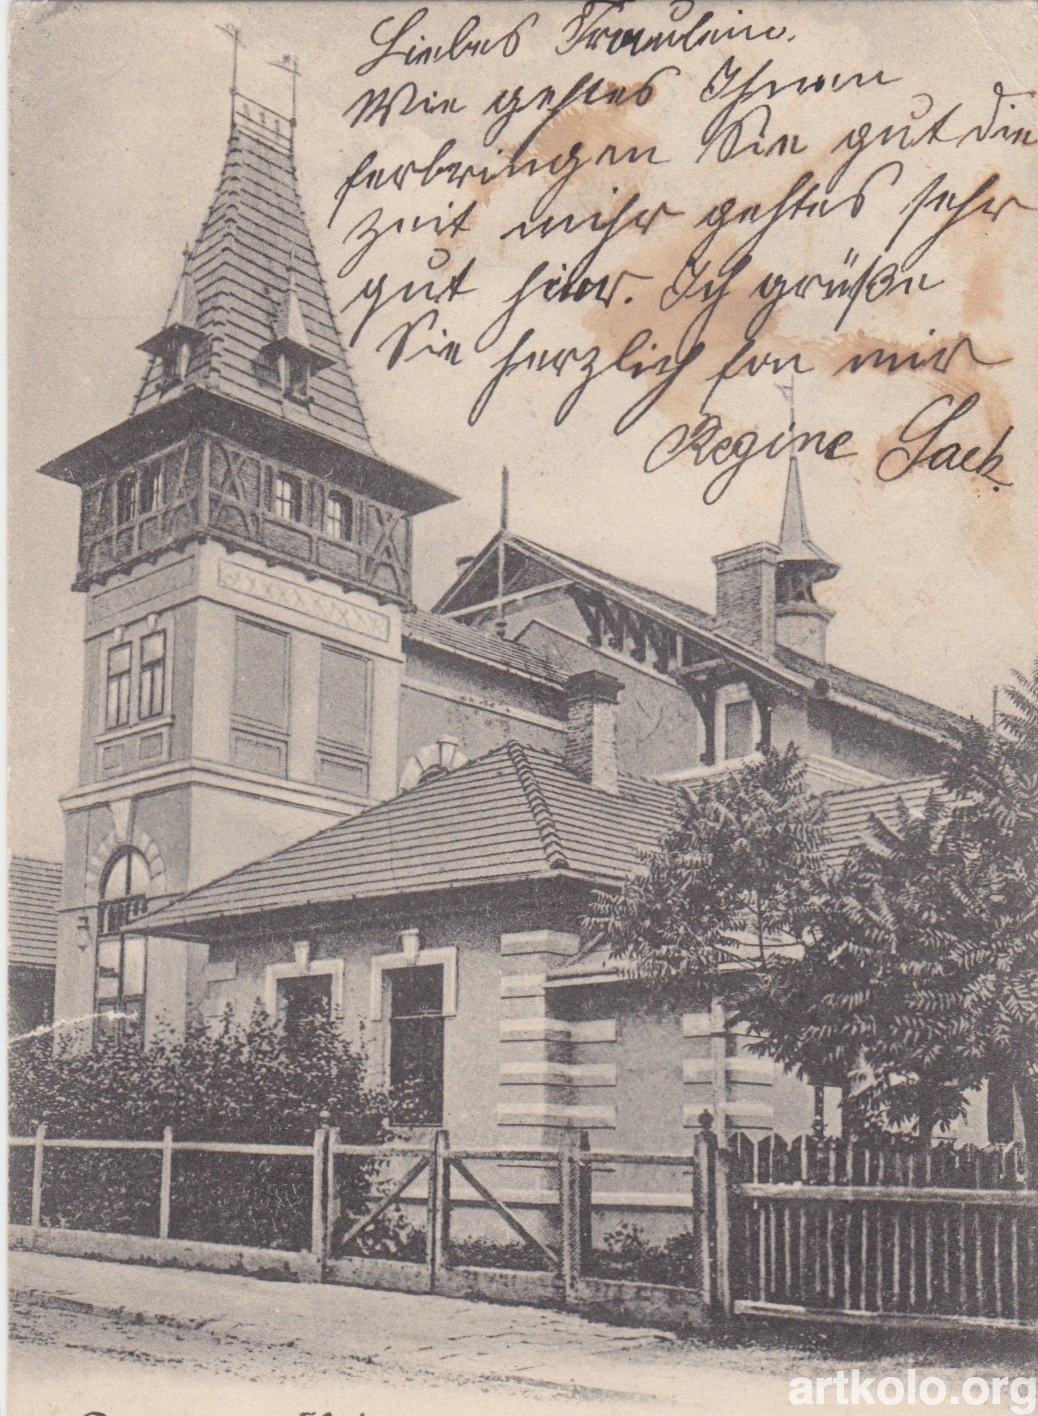 Liebes Fraulein.
Wie gehtes Ihnen
ferbringen Sie gut die
zeit mihr gehtes sehr
gut hier. Ich grüße
Sie herzlich fon mir
Regine Sack.
artkolo.org